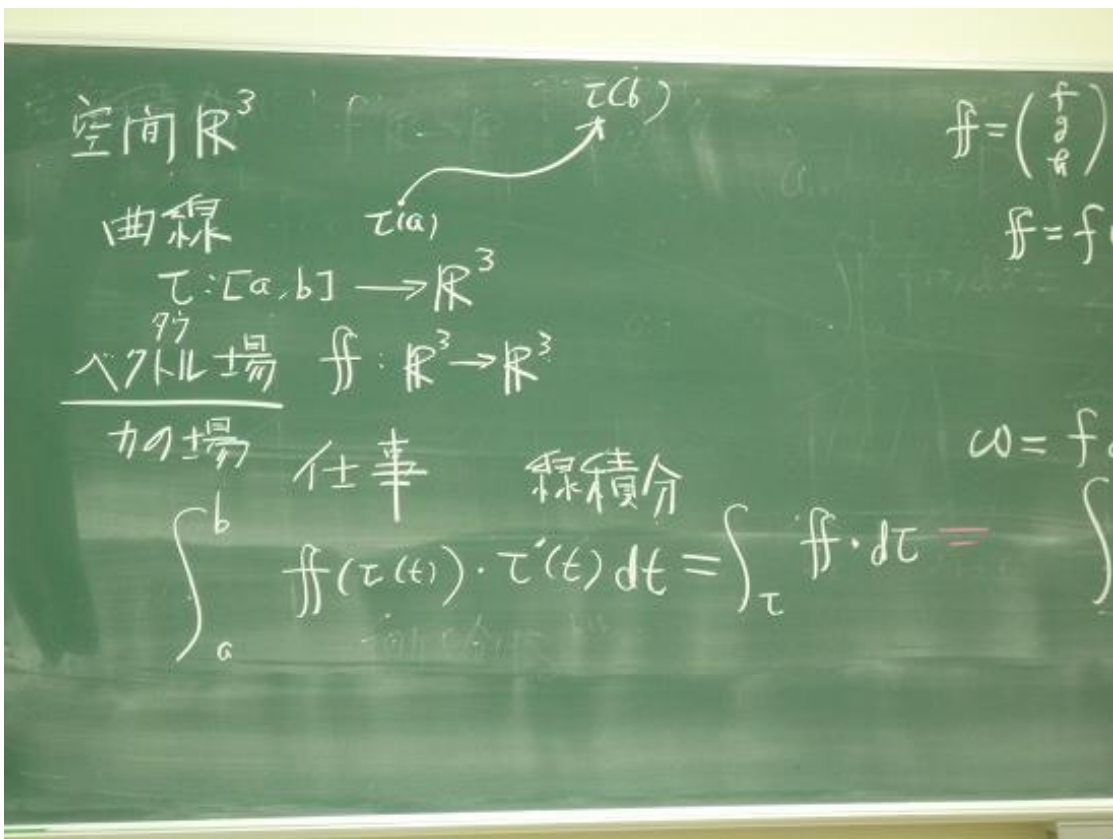 空間 ℝ³
τ(b)
τ(a)
曲線
τ:[a,b] → ℝ³
タウ
ベクトル場 𝕗:ℝ³→ℝ³
力の場 仕事 線積分
∫_a^b 𝕗(τ(t))・τ'(t)dt = ∫_τ 𝕗・dτ =
𝕗 = (f g h)
𝕗 = f
ω = f
∫